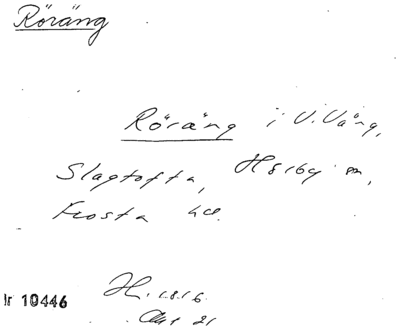 Röräng
Röräng i V. Väng,
Slagtofta, Hörby sn,
Frosta hd.
Ir 10446
H. 1.8.16.
Akt 21